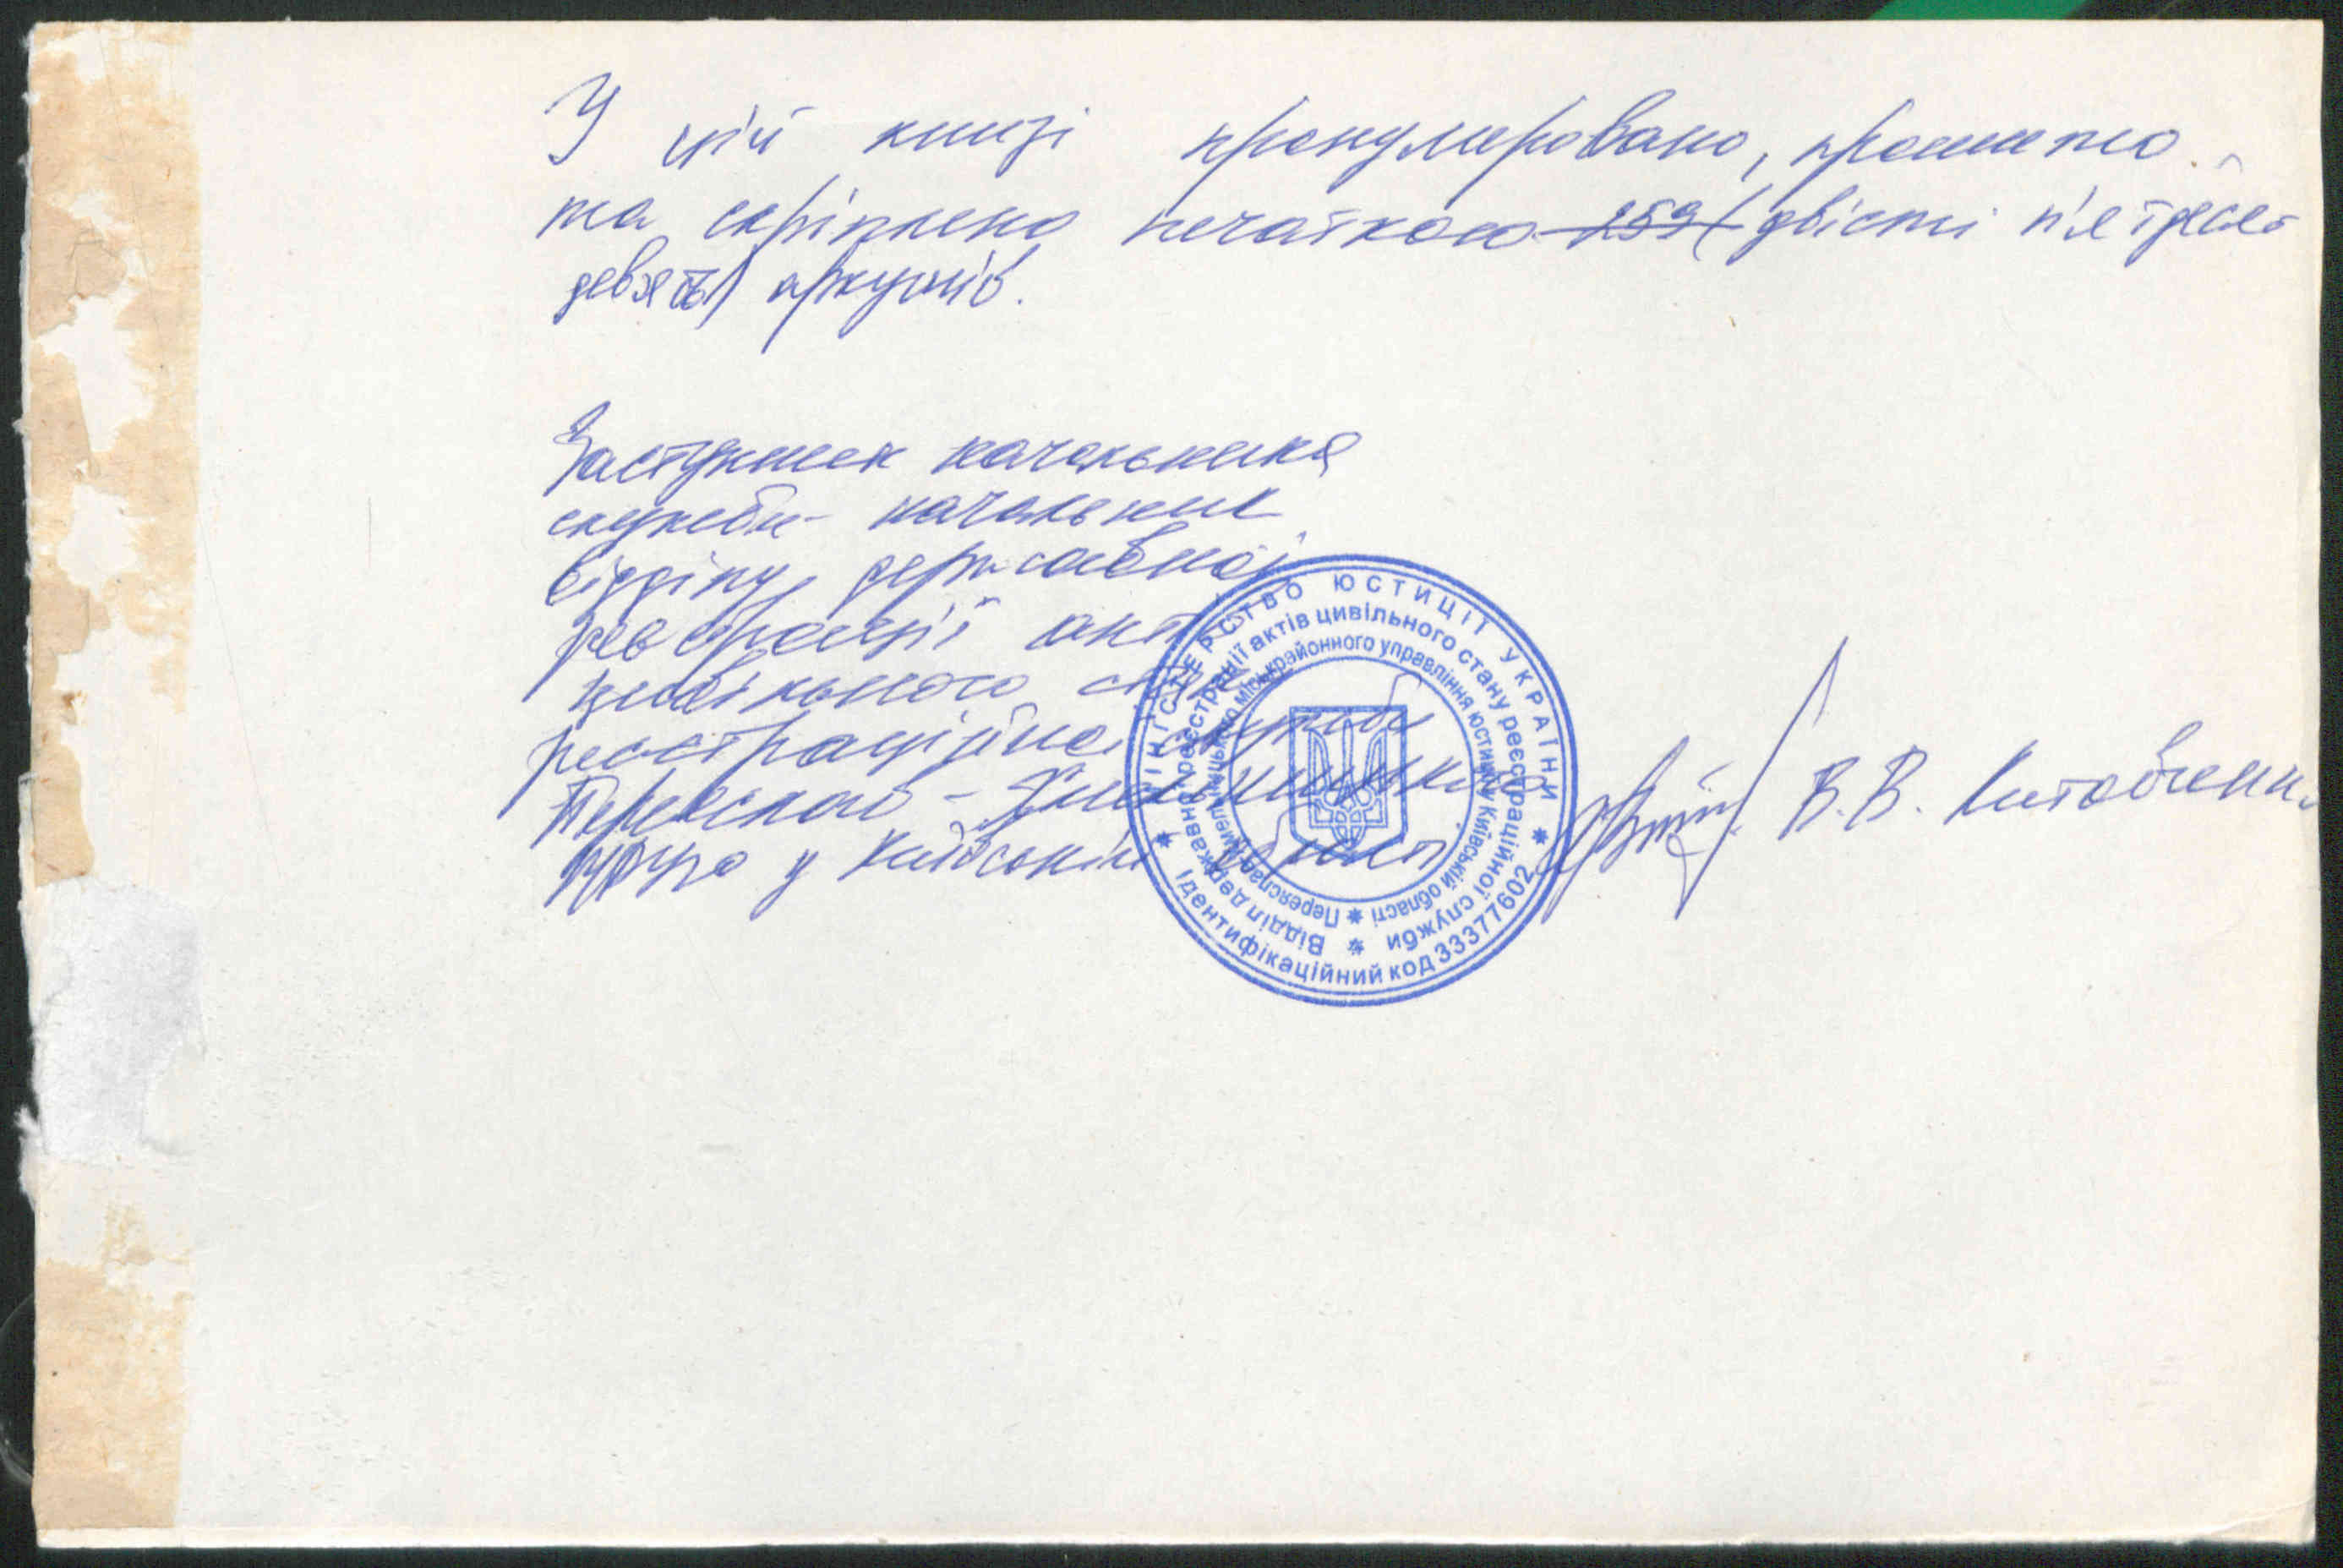 У цій книзі пронумеровано, прошито
та скріплено печаткою 259 (двісті п'ятдесят
дев'ять) аркушів.
Заступник начальника
служби - начальник
відділу державної
реєстрації акт
цивільного
реєстраційної служби
Переяслав - Хмельницького
у Київській області
В.В.
МІНІСТЕРСТВО ЮСТИЦІЇ УКРАЇНИ
* Ідентифікаційний код 33377602 *
Відділ державної реєстрації актів цивільного стану реєстраційної служби *
Переяслав-Хмельницького міськрайонного управління юстиції у Київській області *